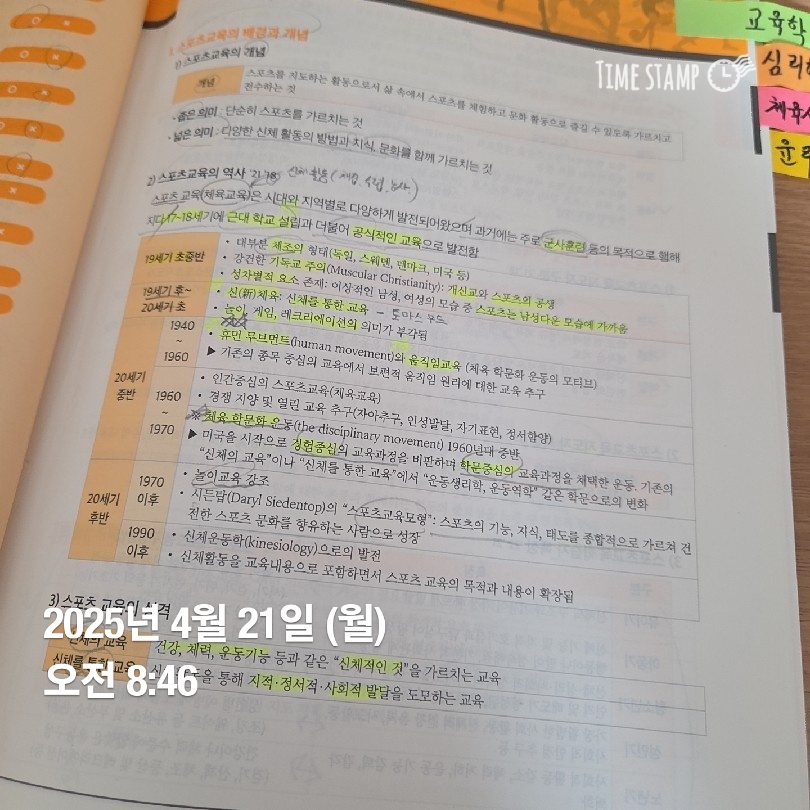 교육학
심리학
체육사
윤리
TIME STAMP
1. 스포츠교육의 배경과 개념
1) 스포츠교육의 개념
개념
스포츠를 지도하는 활동으로서 삶 속에서 스포츠를 체험하고 문화 활동으로 즐길 수 있도록 가르치고
전수하는 것
· 좁은 의미 : 단순히 스포츠를 가르치는 것
· 넓은 의미 : 다양한 신체 활동의 방법과 지식, 문화를 함께 가르치는 것
2) 스포츠교육의 역사 '21 '18
스포츠 교육(체육교육)은 시대와 지역별로 다양하게 발전되어왔으며 과거에는 주로 군사훈련 등의 목적으로 행해
지다 17-18세기에 근대 학교 설립과 더불어 공식적인 교육으로 발전함
19세기 초중반
• 대부분 체조의 형태(독일, 스웨덴, 덴마크, 미국 등)
• 강건한 기독교 주의(Muscular Christianity): 개신교와 스포츠의 공생
• 성차별적 요소 존재: 이상적인 남성, 여성의 모습 중 스포츠는 남성다운 모습에 가까움
19세기 후~
20세기 초
• 신(新)체육: 신체를 통한 교육 - 토마스 우드
• 놀이, 게임, 레크리에이션의 의미가 부각됨
20세기
중반
1940
~
1960
• 휴먼 무브먼트(human movement)와 움직임교육 (체육 학문화 운동의 모티브)
▶ 기존의 종목 중심의 교육에서 보편적 움직임 원리에 대한 교육 추구
1960
~
1970
• 인간중심의 스포츠교육(체육교육)
• 경쟁 지양 및 열린 교육 추구(자아추구, 인성발달, 자기표현, 정서함양)
※ 체육 학문화 운동(the disciplinary movement) 1960년대 중반
▶ 미국을 시작으로 경험중심의 교육과정을 비판하며 학문중심의 교육과정을 채택한 운동. 기존의
"신체의 교육"이나 "신체를 통한 교육"에서 "운동생리학, 운동역학" 같은 학문으로의 변화
20세기
후반
1970
이후
• 놀이교육 강조
• 시든탑(Daryl Siedentop)의 "스포츠교육모형": 스포츠의 기능, 지식, 태도를 종합적으로 가르쳐 건
전한 스포츠 문화를 향유하는 사람으로 성장
1990
이후
• 신체운동학(kinesiology)으로의 발전
• 신체활동을 교육내용으로 포함하면서 스포츠 교육의 목적과 내용이 확장됨
3) 스포츠 교육의 성격
2025년 4월 21일 (월)
오전 8:46
신체의 교육
건강, 체력, 운동기능 등과 같은 "신체적인 것"을 가르치는 교육
신체를 통한 교육
통해 지적·정서적·사회적 발달을 도모하는 교육